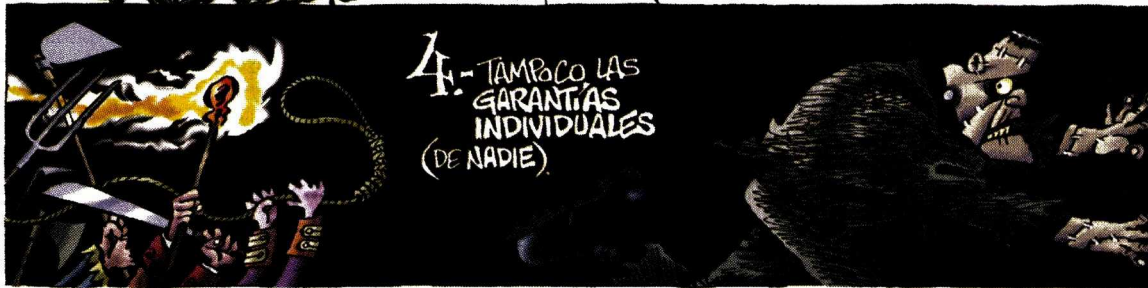 4.- TAMPOCO LAS
GARANTÍAS
INDIVIDUALES
(DE NADIE).